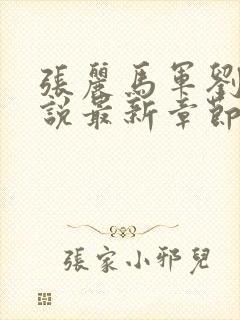 張麗馬軍劉
說最新章節
張家小邪兒